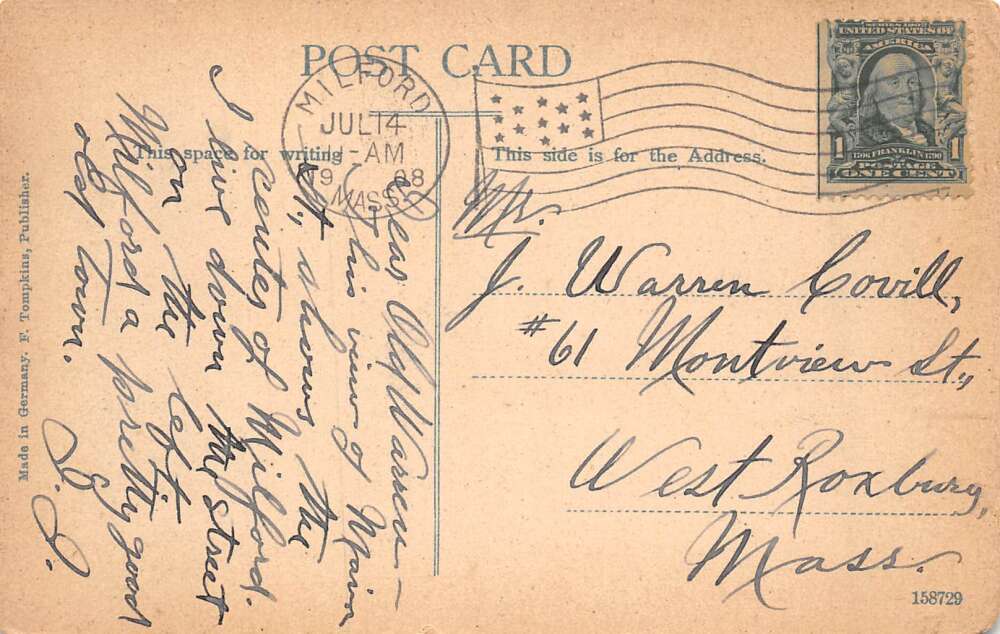 POST CARD
MILFORD
JUL 14
11-AM
19 08
MASS.
SERIES 1902
UNITED STATES OF
AMERICA
1 1706 FRANKLIN 1790 1
POSTAGE
ONE CENT
This space for writing
This side is for the Address.
Dear Old Warren—
This view of Main
St., shows the
center of Milford.
I live down the street
on the left
Milford a pretty good
old town.
Mr.
J. Warren Covill,
#61 Montview St.,
West Roxbury,
Mass.
Made in Germany. F. Tompkins, Publisher.
158729